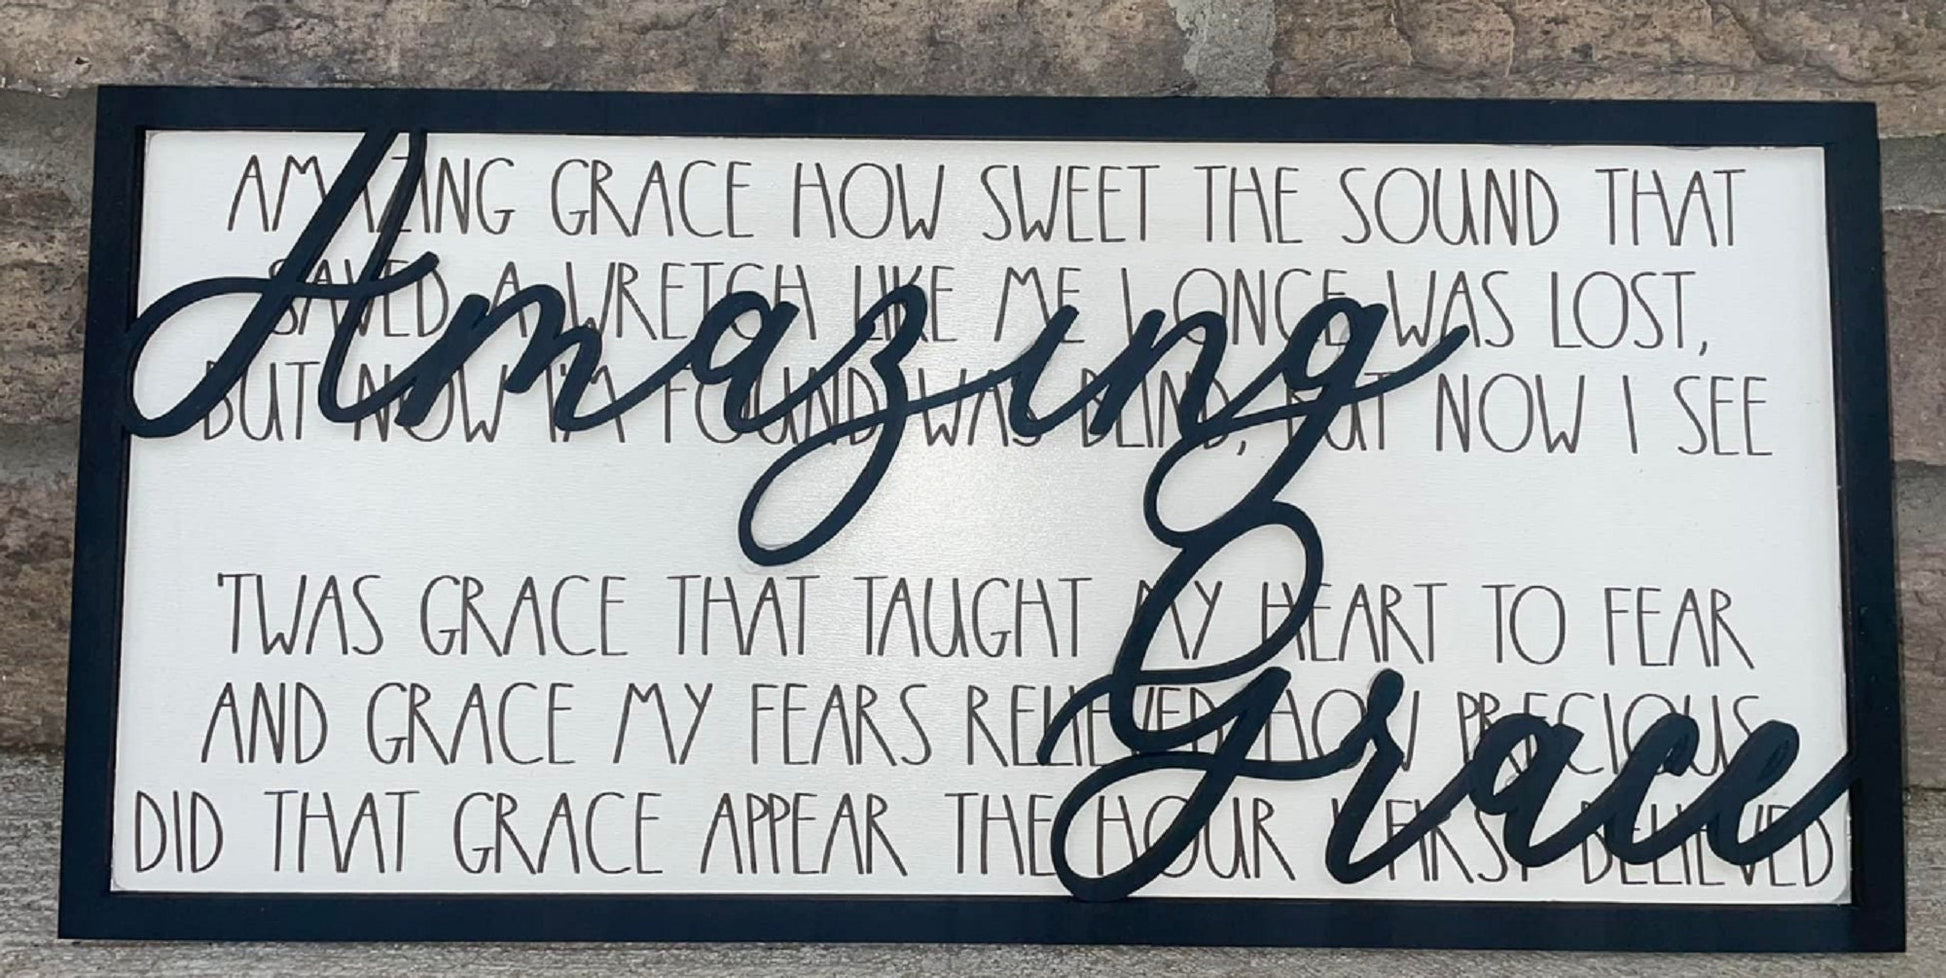 AMAZING GRACE HOW SWEET THE SOUND THAT
SAVED A WRETCH LIKE ME I ONCE WAS LOST,
BUT NOW I'M FOUND WAS BLIND, BUT NOW I SEE
Amazing
'TWAS GRACE THAT TAUGHT MY HEART TO FEAR
AND GRACE MY FEARS RELIEVED HOW PRECIOUS
DID THAT GRACE APPEAR THE HOUR I FIRST BELIEVED
Grace